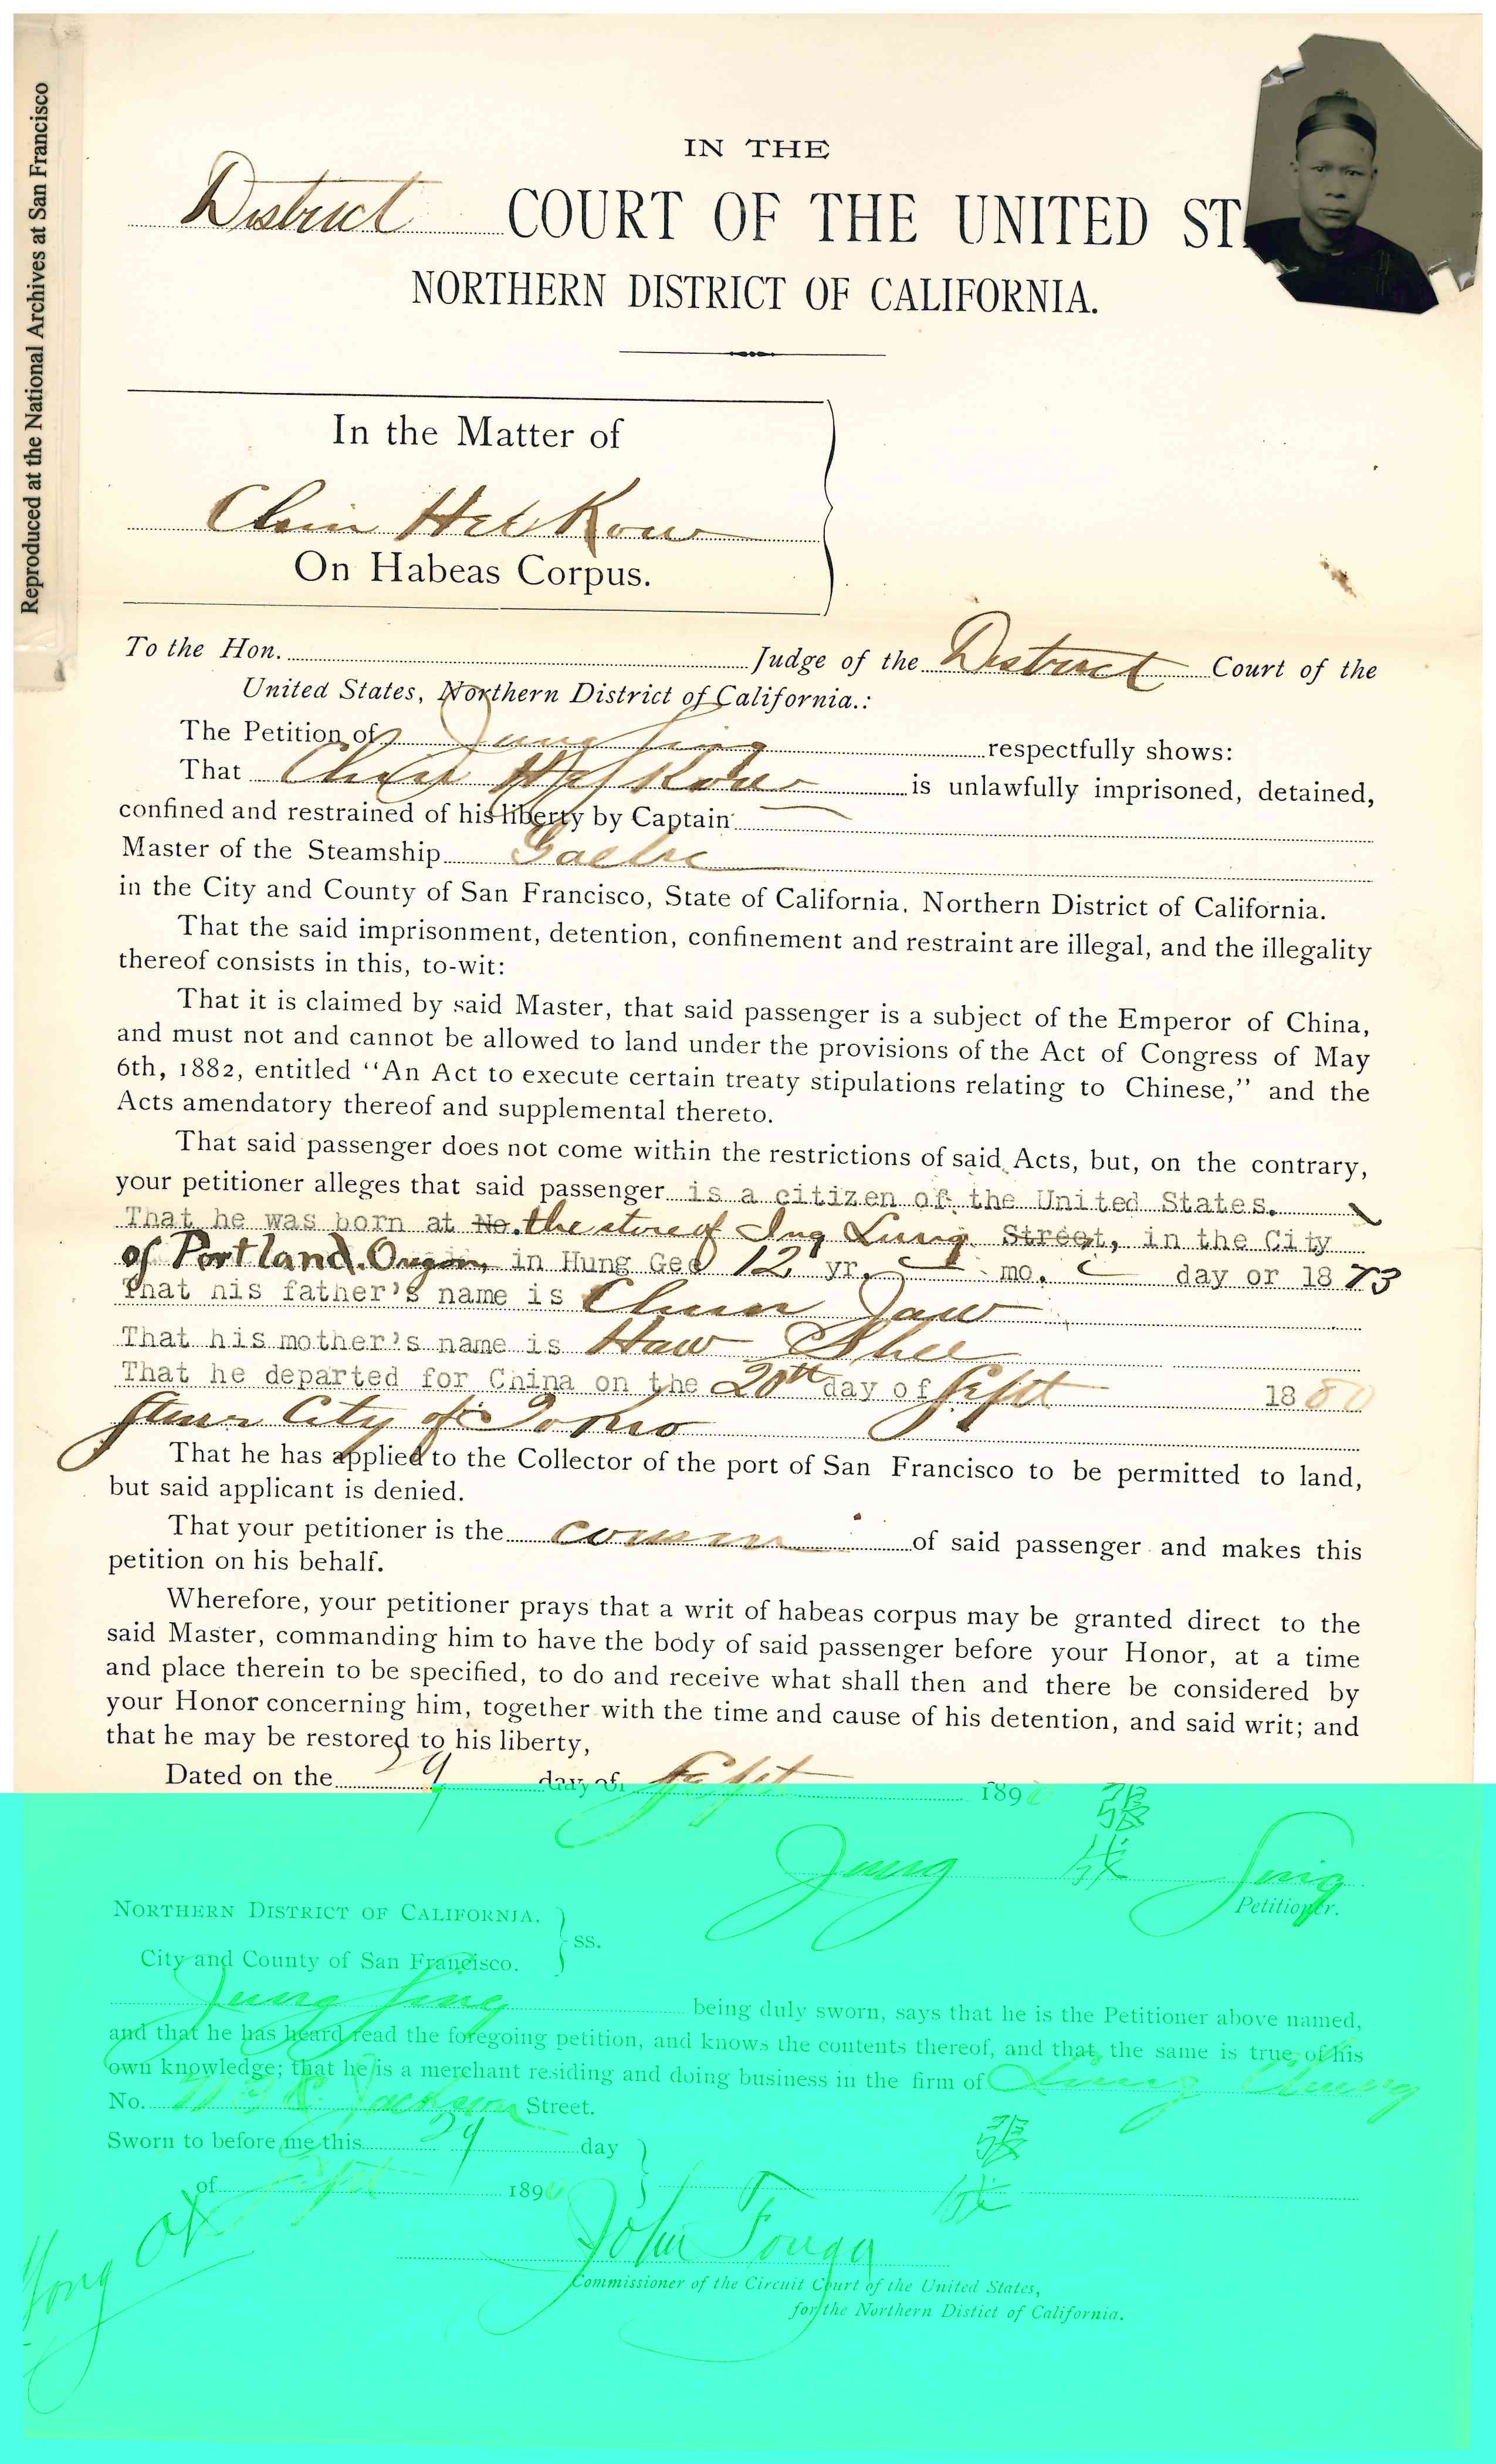 Reproduced at the National Archives at San Francisco
IN THE
District COURT OF THE UNITED ST
NORTHERN DISTRICT OF CALIFORNIA.
In the Matter of
Chin Hee Kow
On Habeas Corpus.
To the Hon. Judge of the District Court of the
United States, Northern District of California.:
The Petition of Jung Sing respectfully shows:
That Kow is unlawfully imprisoned, detained,
confined and restrained of his liberty by Captain
Master of the Steamship Gaelic
in the City and County of San Francisco, State of California, Northern District of California.
That the said imprisonment, detention, confinement and restraint are illegal, and the illegality
thereof consists in this, to-wit:
That it is claimed by said Master, that said passenger is a subject of the Emperor of China,
and must not and cannot be allowed to land under the provisions of the Act of Congress of May
6th, 1882, entitled "An Act to execute certain treaty stipulations relating to Chinese," and the
Acts amendatory thereof and supplemental thereto.
That said passenger does not come within the restrictions of said Acts, but, on the contrary,
your petitioner alleges that said passenger is a citizen of the United States.
That he was born at No. the store of Lung Street, in the City
of Portland. Oregon, in Hung Gee 12 yr. mo. day or 1873
That his father's name is Chun Jaw
That his mother's name is Haw Shee
That he departed for China on the 20th day of Sept 1880
Stmr City of Tokio
That he has applied to the Collector of the port of San Francisco to be permitted to land,
but said applicant is denied.
That your petitioner is the cousin of said passenger and makes this
petition on his behalf.
Wherefore, your petitioner prays that a writ of habeas corpus may be granted direct to the
said Master, commanding him to have the body of said passenger before your Honor, at a time
and place therein to be specified, to do and receive what shall then and there be considered by
your Honor concerning him, together with the time and cause of his detention, and said writ; and
that he may be restored to his liberty,
Dated on the 29 day of Sept 1890
Jung 張成 Sing
Petitioner.
NORTHERN DISTRICT OF CALIFORNIA.
ss.
City and County of San Francisco.
Jung Sing being duly sworn, says that he is the Petitioner above named,
and that he has heard read the foregoing petition, and knows the contents thereof, and that the same is true of his
own knowledge; that he is a merchant residing and doing business in the firm of
No. Jackson Street.
Sworn to before me this 29 day
of Sept 1890
張成
John Fouga
Commissioner of the Circuit Court of the United States,
for the Northern Distict of California.